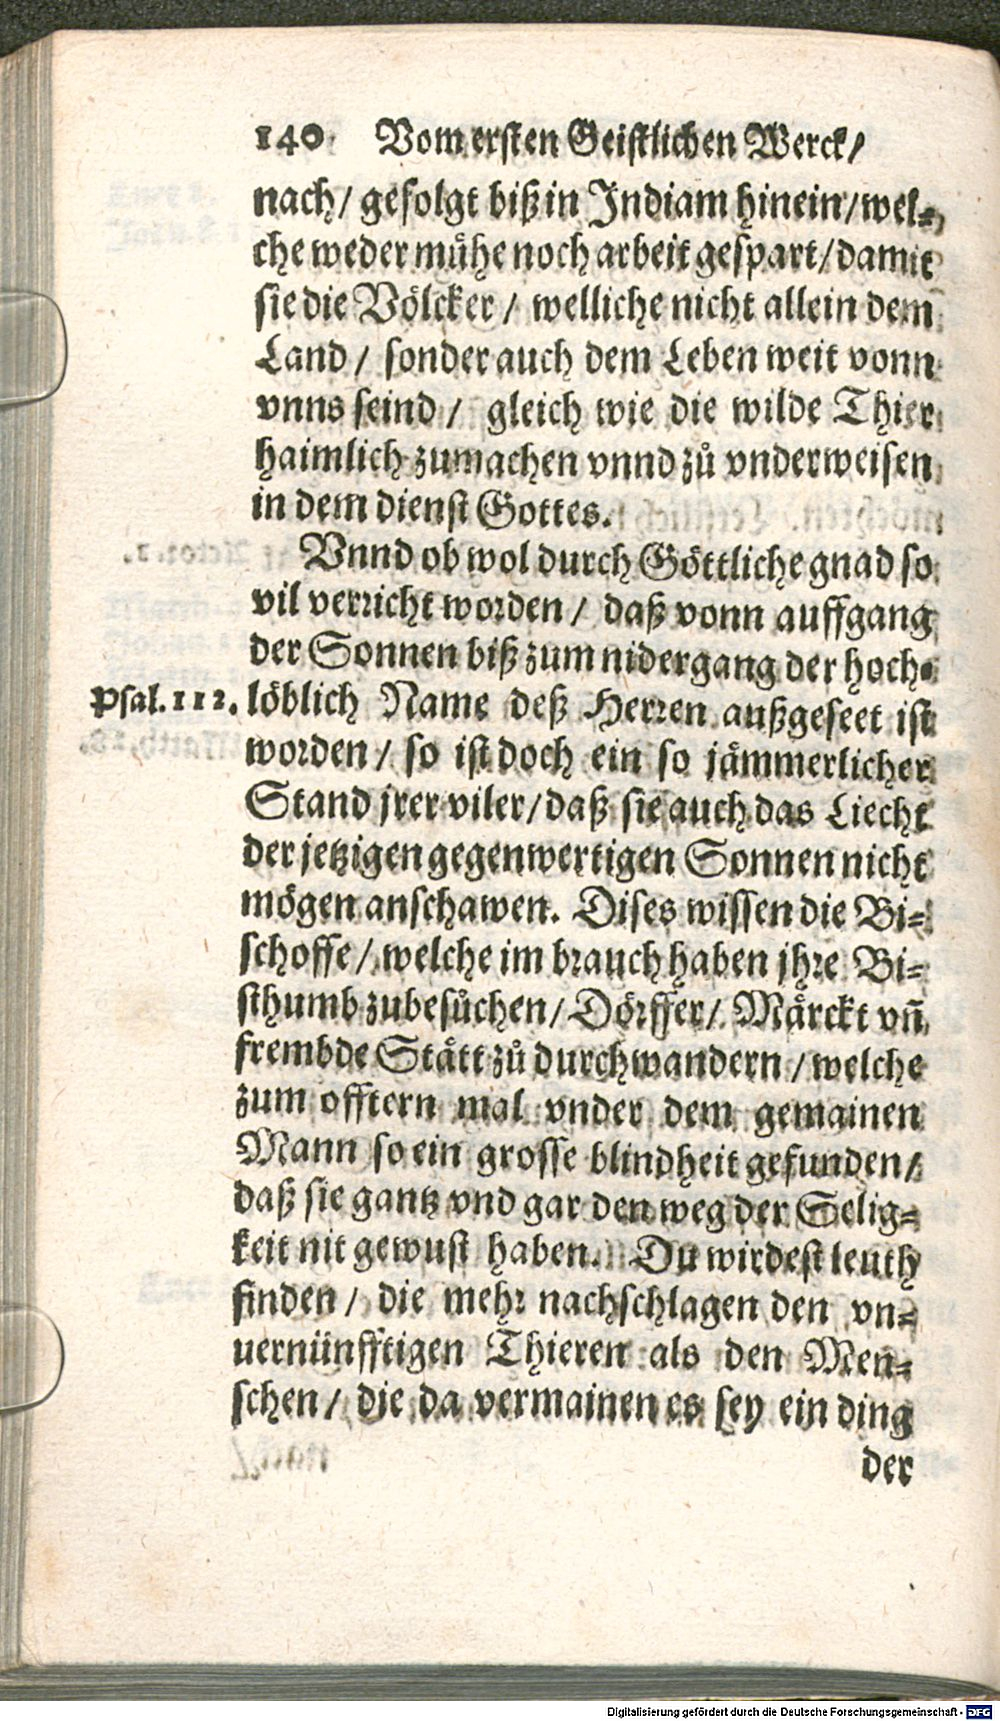 140. Vom ersten Geistlichen Werck/
nach/ gefolgt biß in Indiam hinein/wel-
che weder mühe noch arbeit gespart/damit
sie die Völcker / welliche nicht allein dem
Land/ sonder auch dem Leben weit vonn
vnns seind / gleich wie die wilde Thier
haimlich zumachen vnnd zů vnderweisen
in dem dienst Gottes.
Vnnd ob wol durch Göttliche gnad so
vil verricht worden / daß vonn auffgang
der Sonnen biß zum nidergang der hoch-
Psal.112. löblich Name deß Herren außgeseet ist
worden / so ist doch ein so jämmerlicher
Stand jrer viler/daß sie auch das Liecht
der jetzigen gegenwertigen Sonnen nicht
mögen anschawen. Dises wissen die Bi-
schoffe/ welche im brauch haben jhre Bi-
sthumb zubesůchen/ Dörffer/ Märckt vñ
frembde Stätt zů durchwandern / welche
zum offtern mal vnder dem gemainen
Mann so ein grosse blindheit gefunden/
daß sie gantz vnd gar den weg der Selig-
keit nit gewust haben. Du wirdest leuth
finden / die mehr nachschlagen den vn-
uernünfftigen Thieren als den Men-
schen / die da vermainen es sey ein ding
der
Digitalisierung gefördert durch die Deutsche Forschungsgemeinschaft - DFG